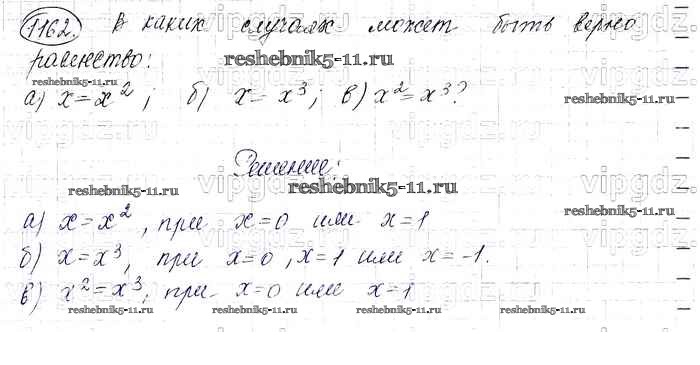 1162. В каких случаях может быть верно
равенство:
reshebnik5-11.ru
reshebnik5-11.ru
а) x = x²; б) x = x³; в) x² = x³?
reshebnik5-11.ru
vipgdz.ru
Решение:
reshebnik5-11.ru
reshebnik5-11.ru
vipgdz.ru
а) x = x², при x = 0 или x = 1
reshebnik5-11.ru
б) x = x³, при x = 0, x = 1 или x = -1.
в) x² = x³, при x = 0 или x = 1
reshebnik5-11.ru
reshebnik5-11.ru
reshebnik5-11.ru